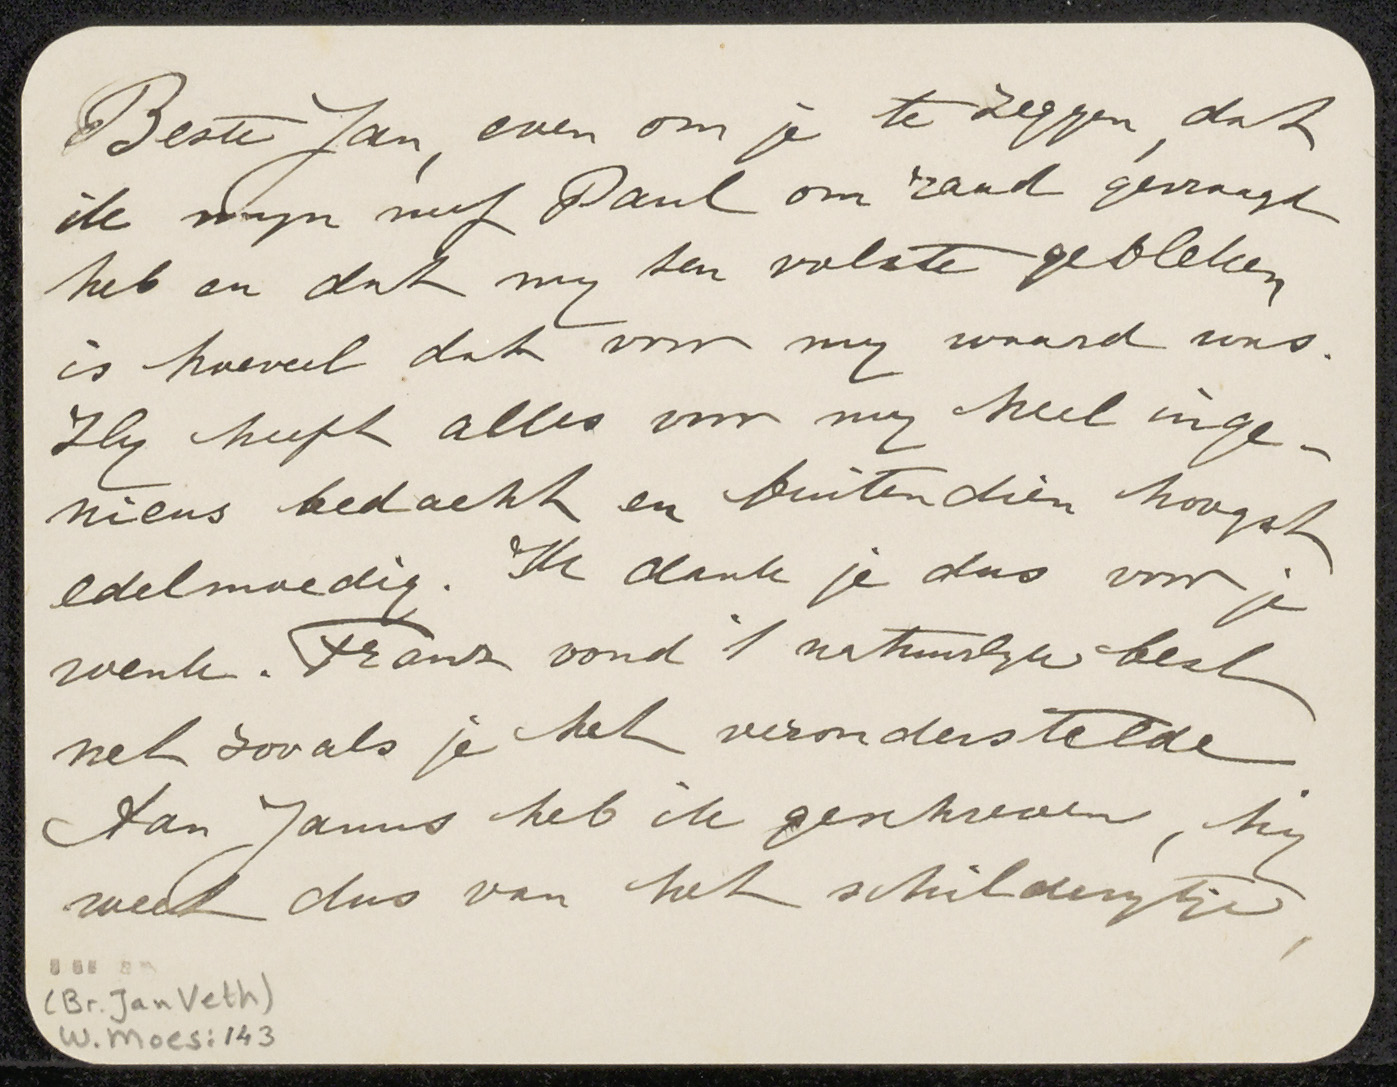 Beste Jan, even om je te zeggen, dat
ik mijn neef Paul om raad gevraagd
heb en dat mij ten volste gebleken
is hoeveel dat voor mij waard was.
Hij heeft alles voor mij heel inge-
nieus bedacht en buitendien hoogst
edelmoedig. Ik dank je dus voor je
wenk. Frans vond 't natuurlijk best
net zooals je het veronderstelde
Aan Janus heb ik geschreven, hij
weet dus van het schilderijtje,
(Br. Jan Veth)
W. Moes: 143